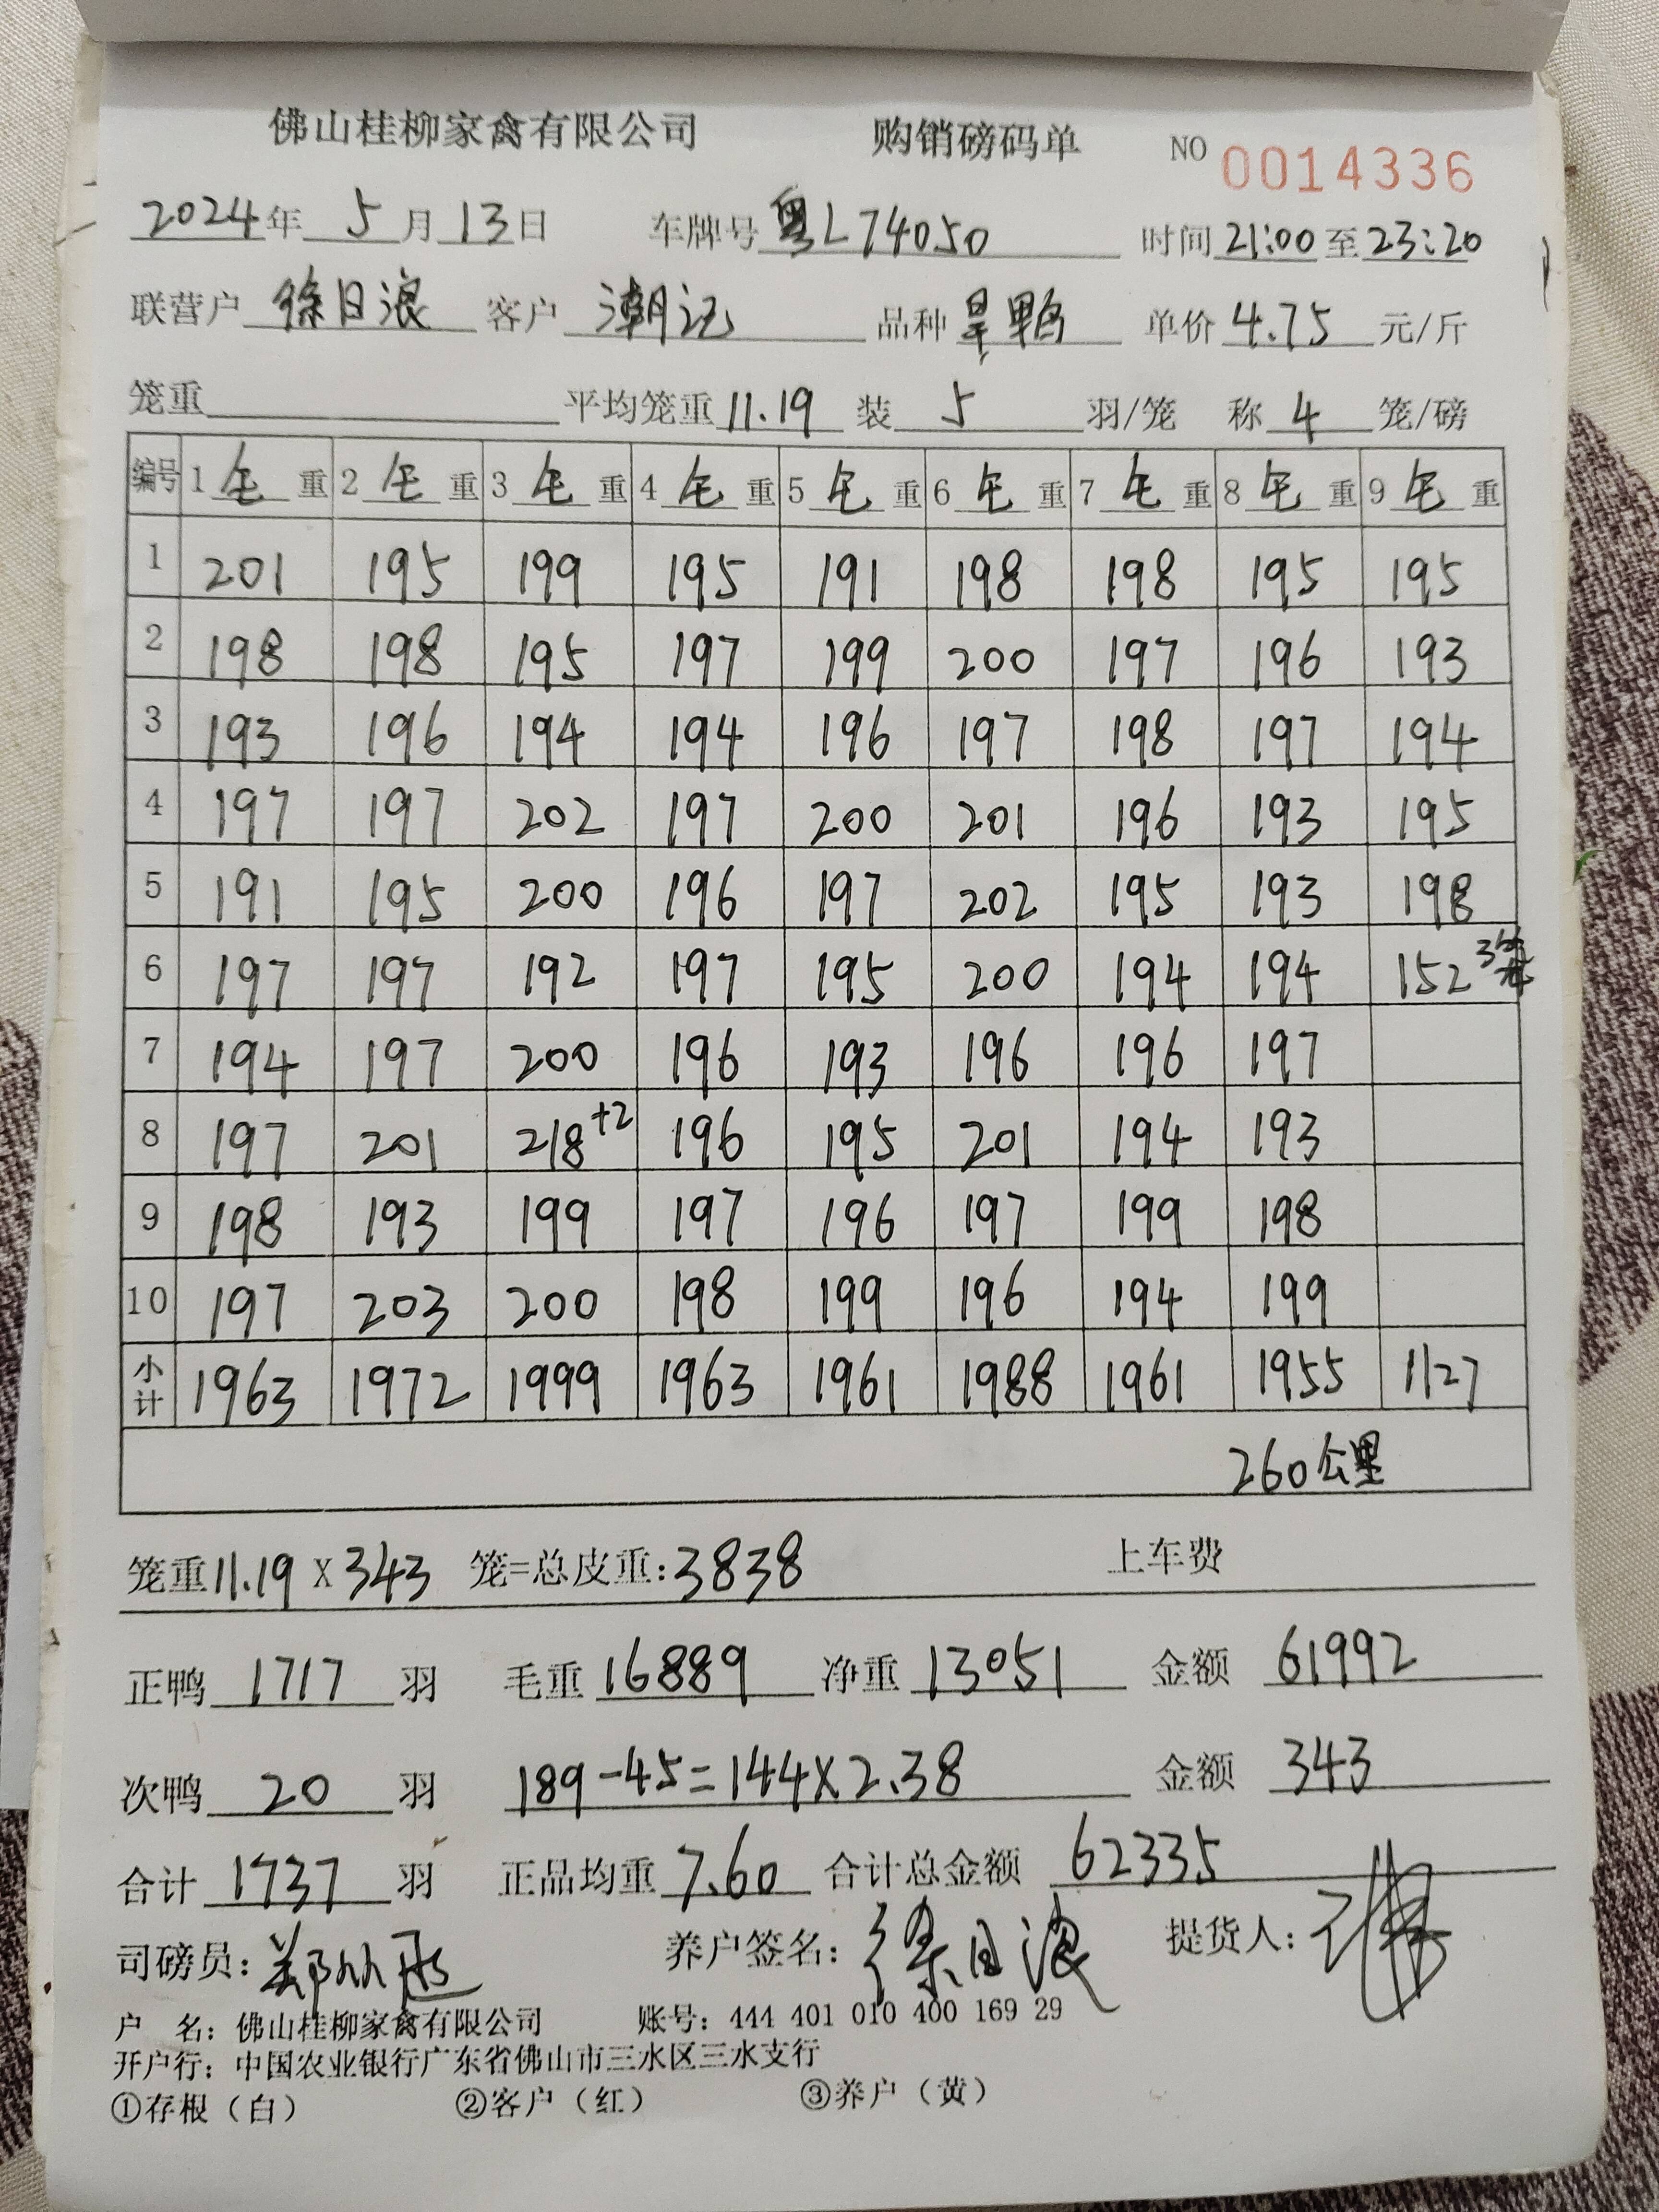 佛山桂柳家禽有限公司 购销磅码单 NO 0014336
2024年 5月13日 车牌号 粤L74050 时间 21:00 至 23:20
联营户 徐日浪 客户 潮记 品种 旱鸭 单价 4.75 元/斤
笼重 平均笼重 11.19 装 5 羽/笼 称 4 笼/磅
编号 1毛重 2毛重 3毛重 4毛重 5毛重 6毛重 7毛重 8毛重 9毛重
1 201 195 199 195 191 198 198 195 195
2 198 198 195 197 199 200 197 196 193
3 193 196 194 194 196 197 198 197 194
4 197 197 202 197 200 201 196 193 195
5 191 195 200 196 197 202 195 193 198
6 197 197 192 197 195 200 194 194 152 3笼
7 194 197 200 196 193 196 196 197
8 197 201 218+2 196 195 201 194 193
9 198 193 199 197 196 197 199 198
10 197 203 200 198 199 196 194 199
小计 1963 1972 1999 1963 1961 1988 1961 1955 1127
260公里
笼重11.19 X 343 笼=总皮重:3838 上车费
正鸭 1717 羽 毛重 16889 净重 13051 金额 61992
次鸭 20 羽 189-45=144X2.38 金额 343
合计 1737 羽 正品均重 7.60 合计总金额 62335
司磅员: 郑 养户签名: 徐日浪 提货人:
户 名: 佛山桂柳家禽有限公司 账号: 444 401 010 400 169 29
开户行: 中国农业银行广东省佛山市三水区三水支行
①存根（白） ②客户（红） ③养户（黄）